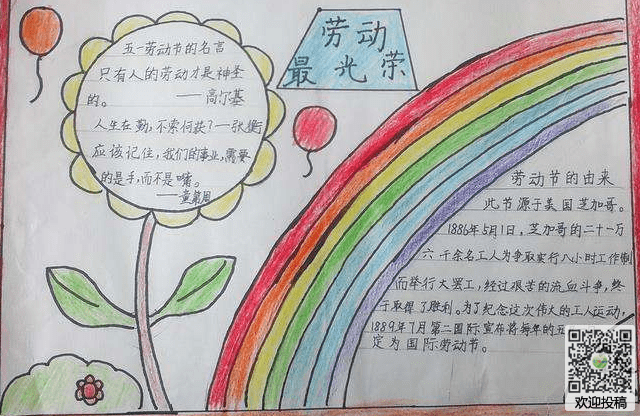 劳动
最光荣
五一劳动节的名言
只有人的劳动才是神圣
的。 ——高尔基
人生在勤,不索何获?一张衡
应该记住,我们的事业,需要
的是手,而不是嘴。
——童第周
劳动节的由来
此节源于美国芝加哥。
1886年5月1日,芝加哥的二十一万
六千余名工人为争取实行八小时工作制
而举行大罢工,经过艰苦的流血斗争,终
于取得了胜利。为了纪念这次伟大的工人运动,
1889年7月第二国际宣布将每年的五
定为国际劳动节。
欢迎投稿